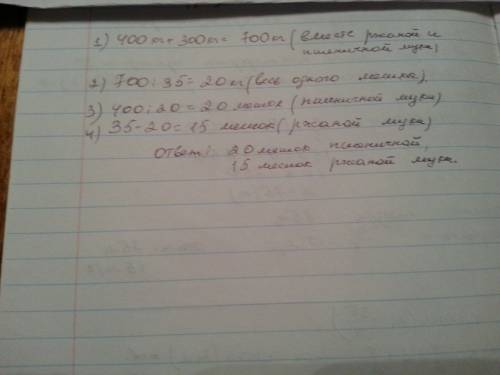 1) 400 кг + 300 кг = 700 кг (вместе ржаной и
пшеничной муки)
2) 700 : 35 = 20 кг (весь одного мешка)
3) 400 : 20 = 20 мешок (пшеничной муки)
4) 35 - 20 = 15 мешок (ржаной муки)
Ответ: 20 мешок пшеничной,
15 мешок ржаной муки.